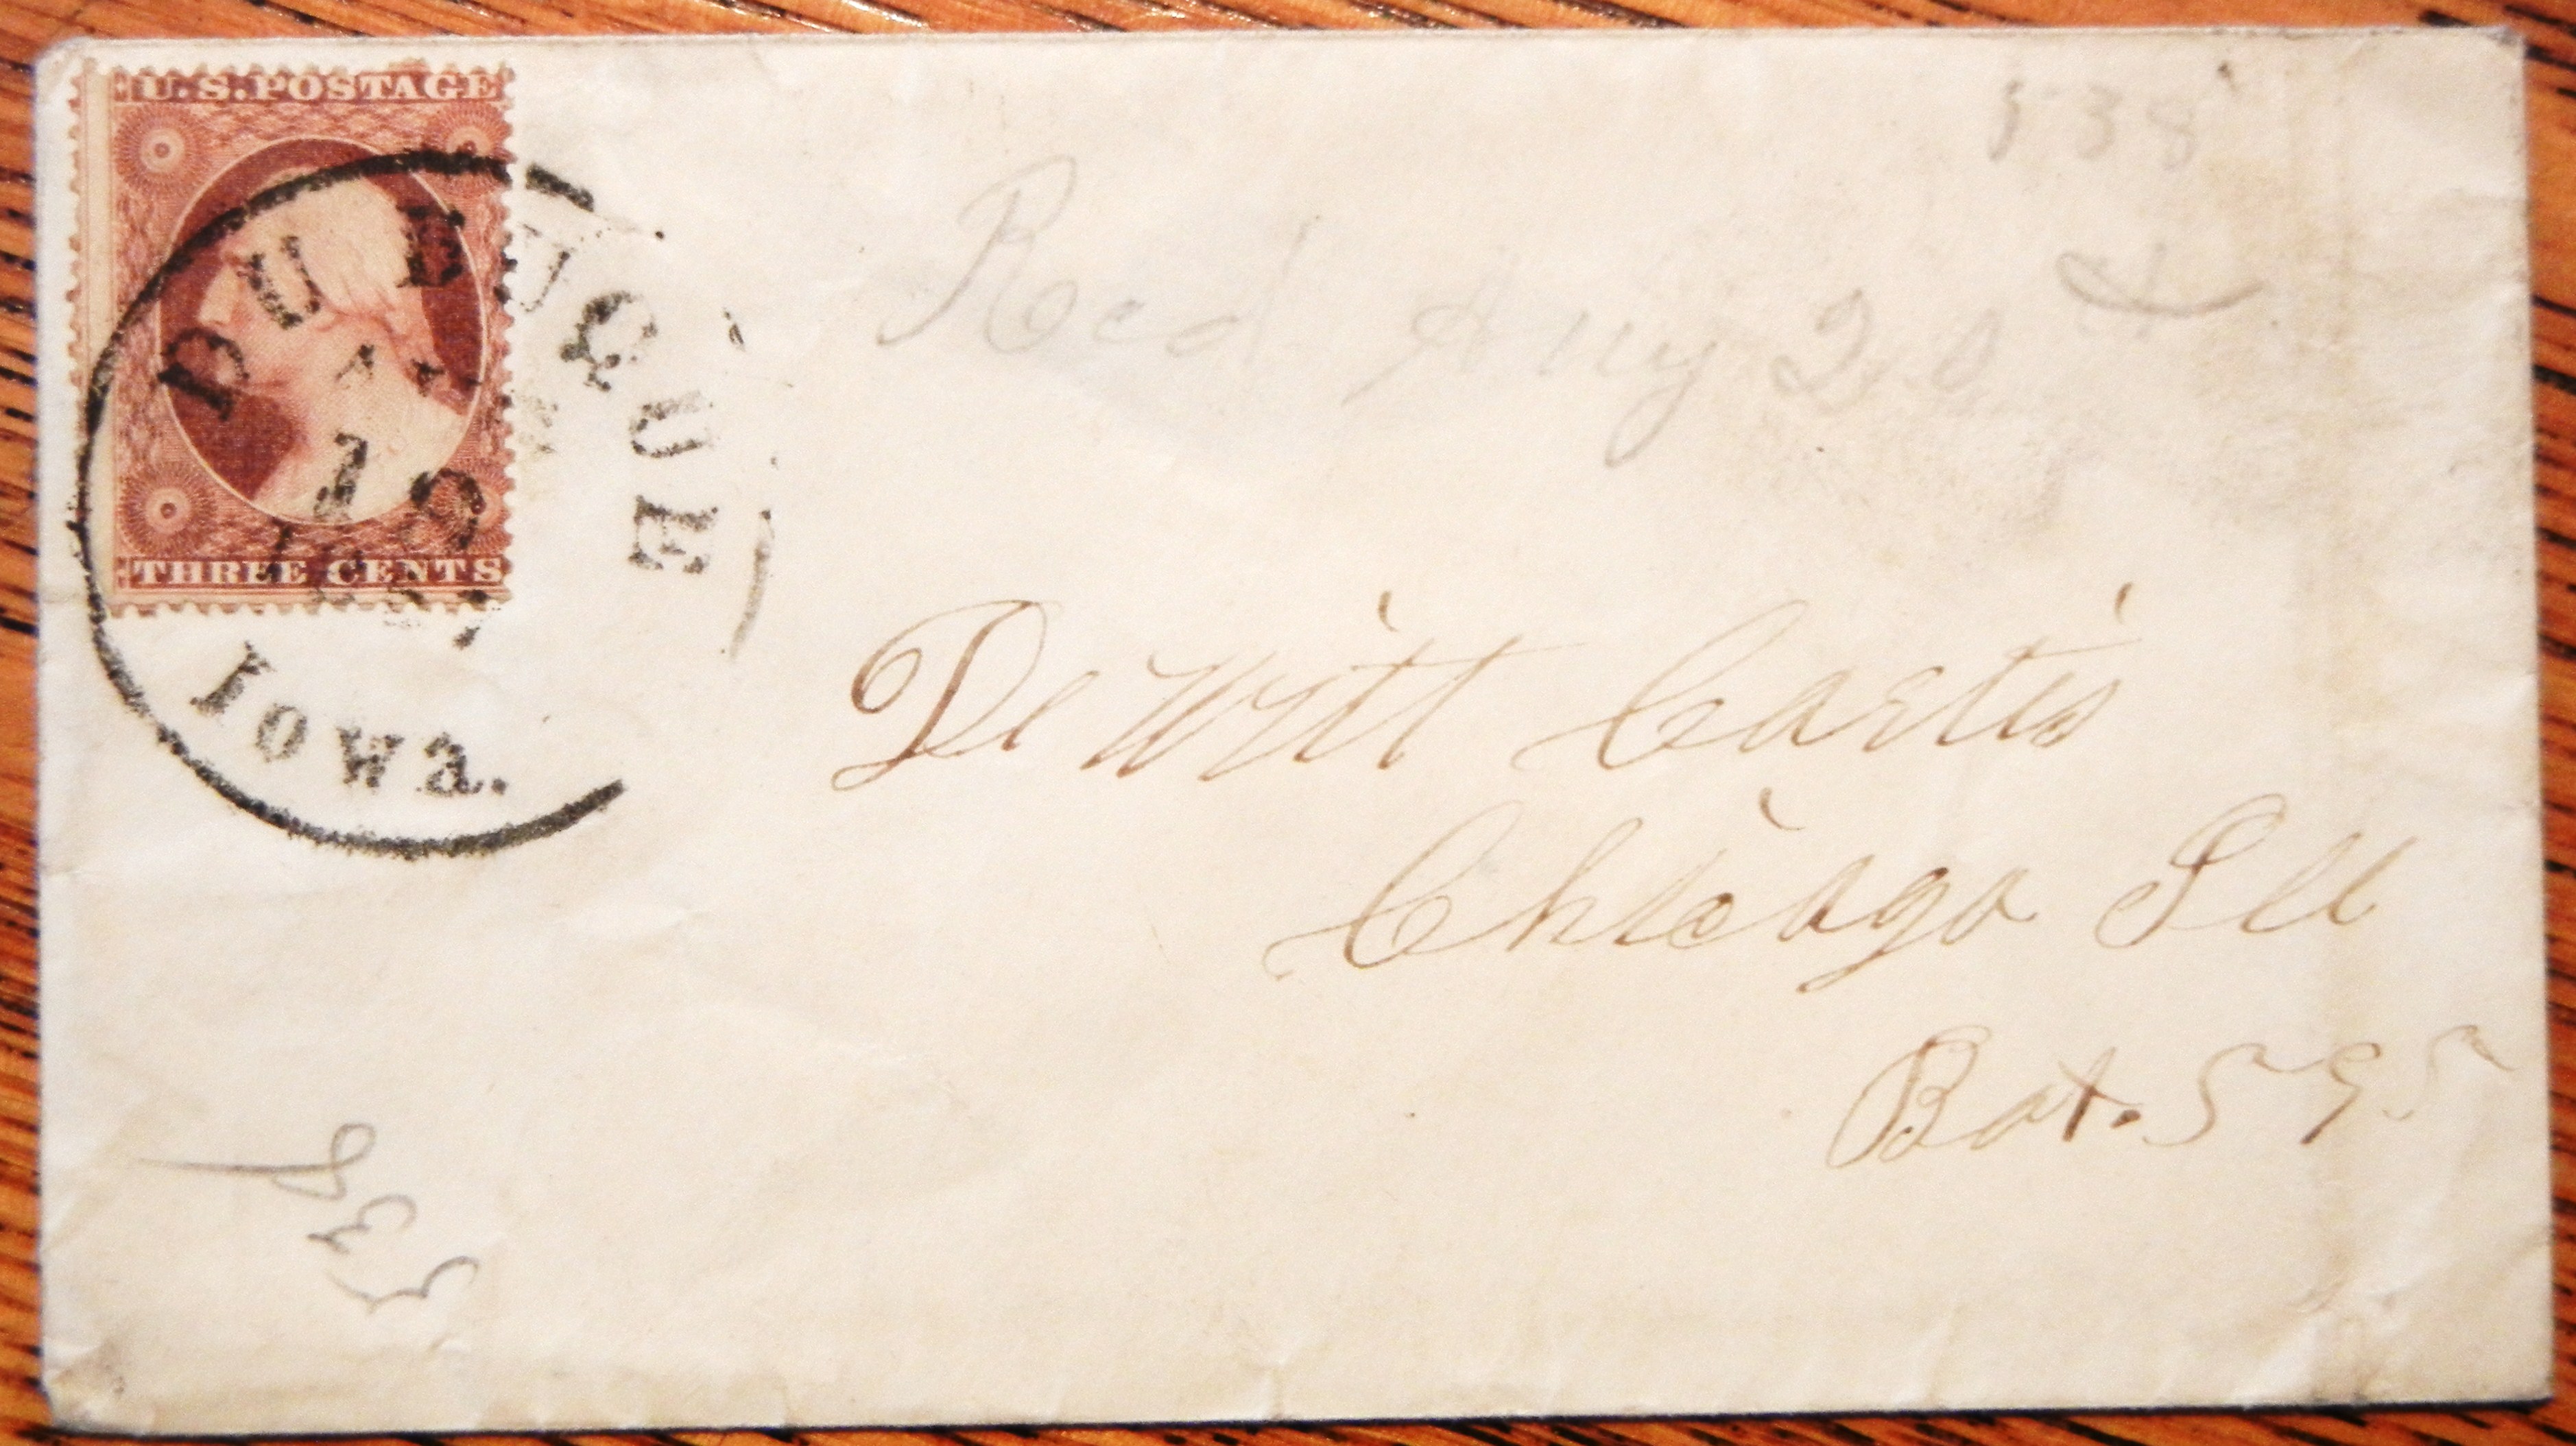 U.S. POSTAGE
THREE CENTS
DUBUQUE
Iowa.
538
Recd Aug 20
DeWitt Curtis
Chicago Ill
Box. 595
538